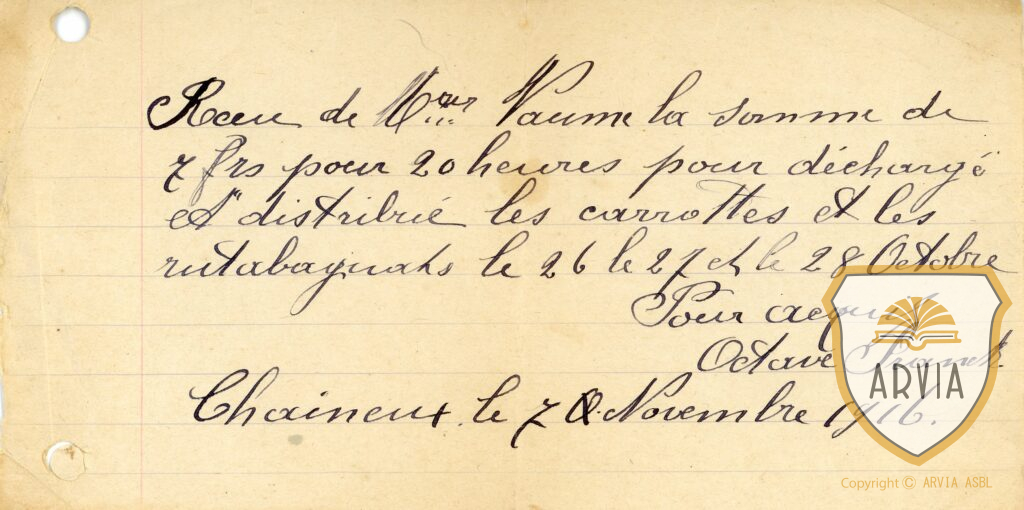 Recu de Mr Vaume la somme de
7 frs pour 20 heures pour déchargé
et distribué les carrottes et les
rutabagnats le 26 le 27 et le 28 Octobre
Pour acquit
Octave
Chaineux le 7 Novembre 1916.
ARVIA
Copyright © ARVIA ASBL